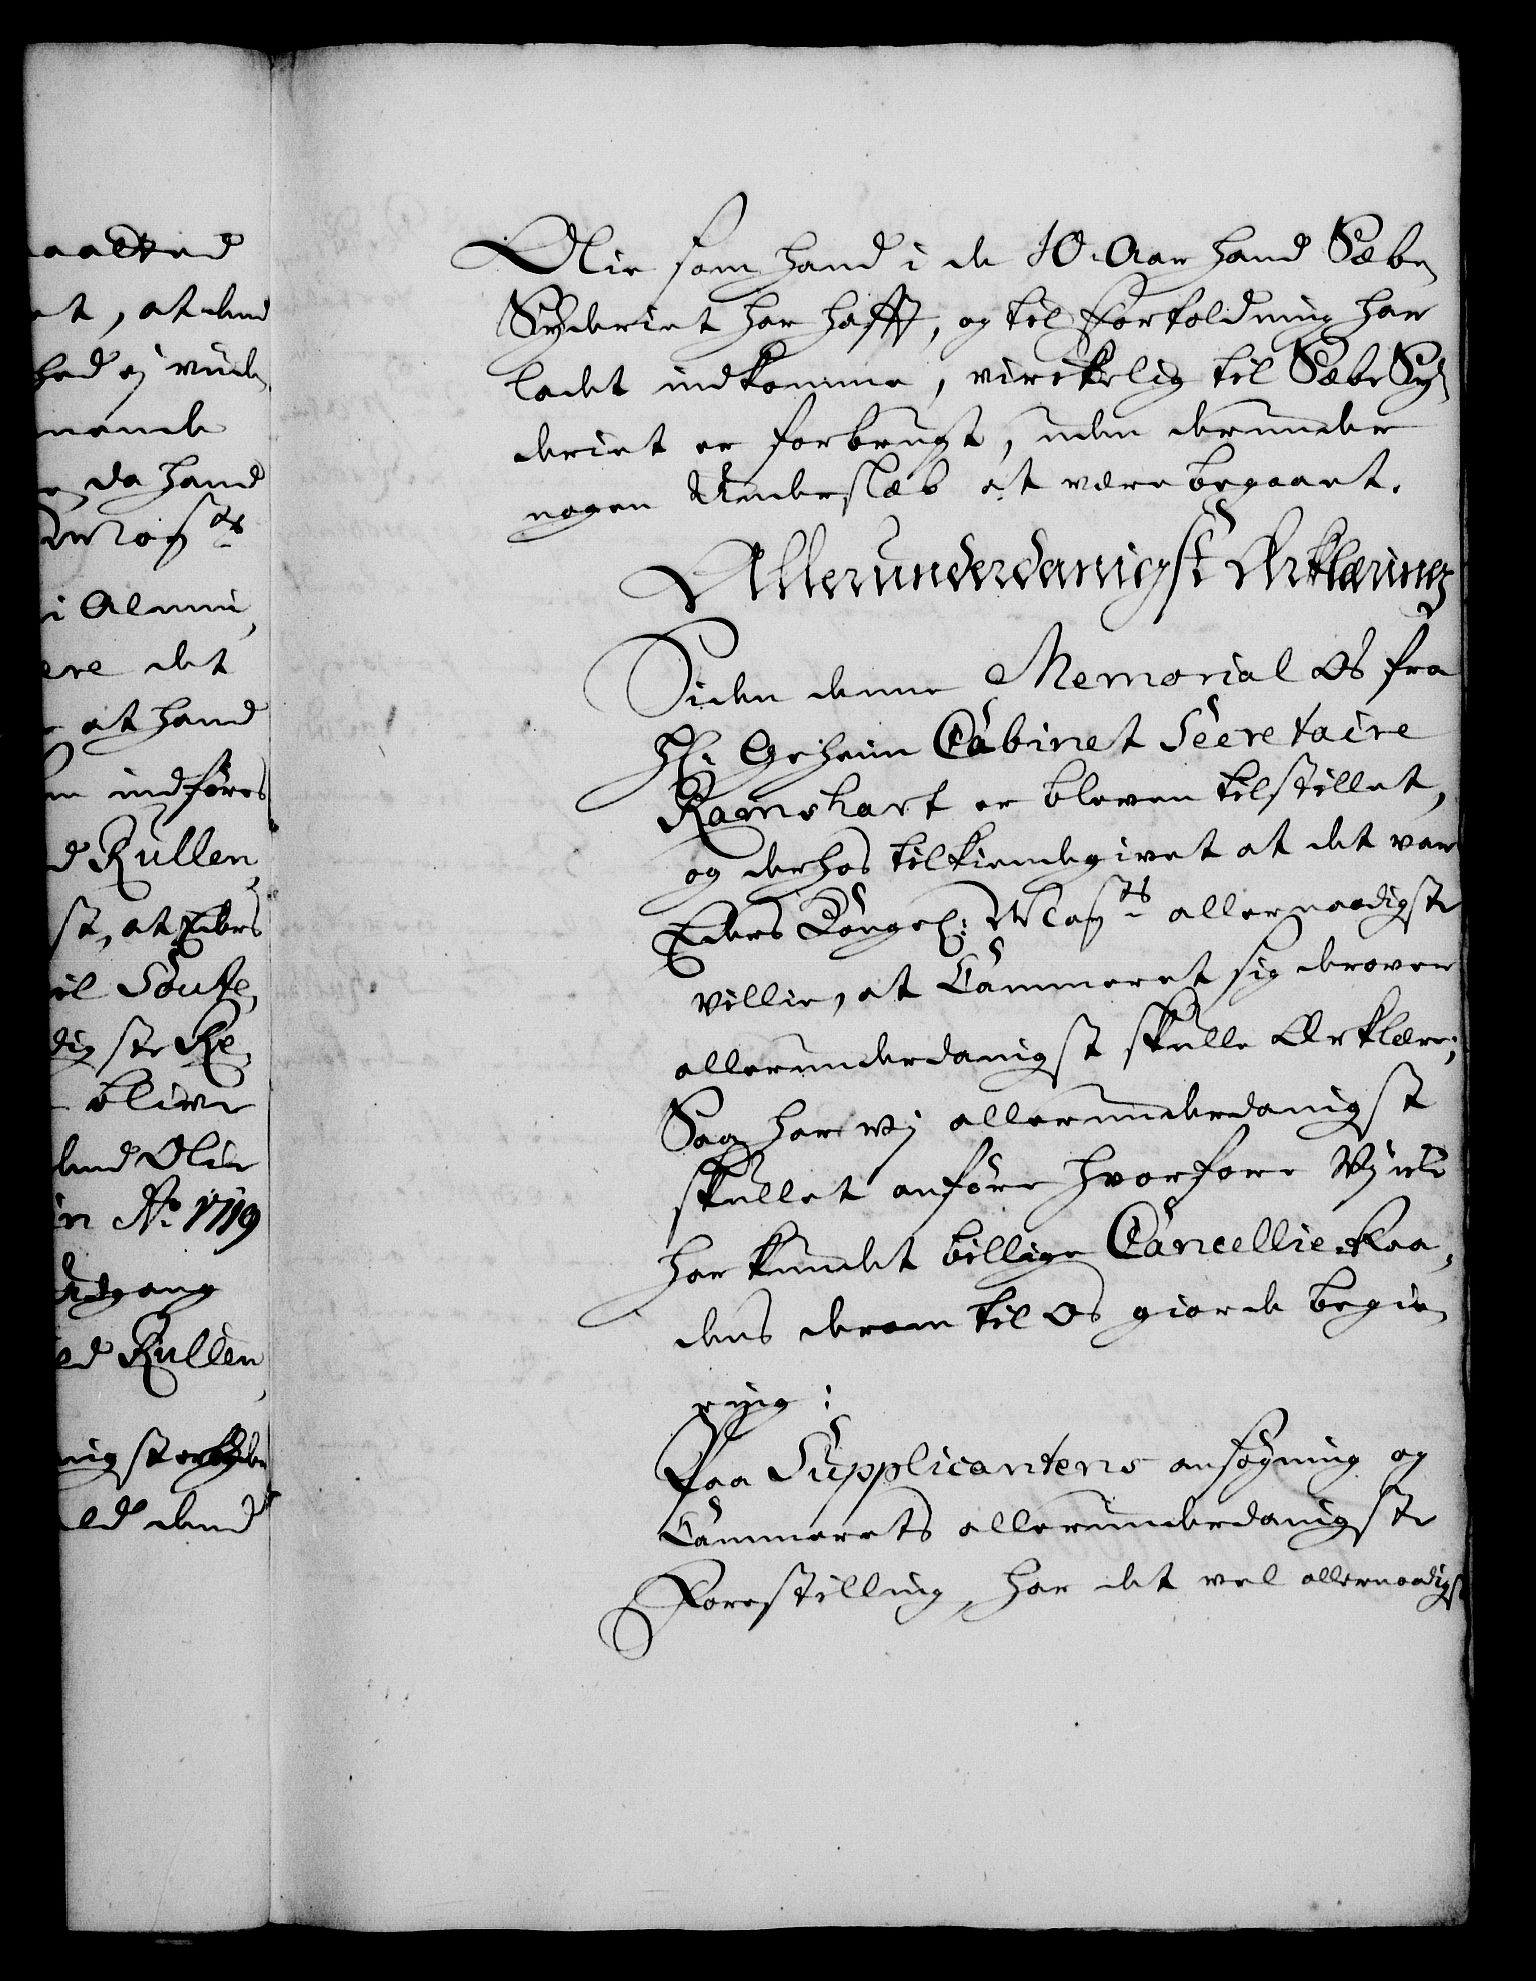 aaLked
et, at dend
hed ej viide
nende
da hand
May.ts
i Almin,
ere det
at hand
indføres
d Rullen,
st, at Eders
til Soute,
digste Re,
blive
dend Olie
in Ao. 1719
Udgang
ed Rullen,
nigst
ed dend
Olie som hand i de 10. Aar hand Sæbe
Syderiet har hafft, og til Fortoldning har
ladet indkomme, virckelig til Sæbe Sy,
deriet er forbrugt, uden derunder
nogen Underslæb at være begaaet.
Allerunderdanigst Erklæring
Siden denne Memorial os fra
Hr. Geheim Cabinet Secretaire
Ramshart er bleven tilstillet,
og derhos tilkiendegivet at det var
Eders Kongel: May.ts allernaadigste
villie, at Cammeret sig derover
allerunderdanigst skulle Erklære;
Saa har vj allerunderdanigst
skullet anføre hvorfore Vj icke
har kundet billige Cancellie-Raa,
dens derom til os giorde begie,
ring:
Paa Supplicantens ansøgning og
Cammerets allerunderdanigste
Forestilling, har det vel allernaadigst